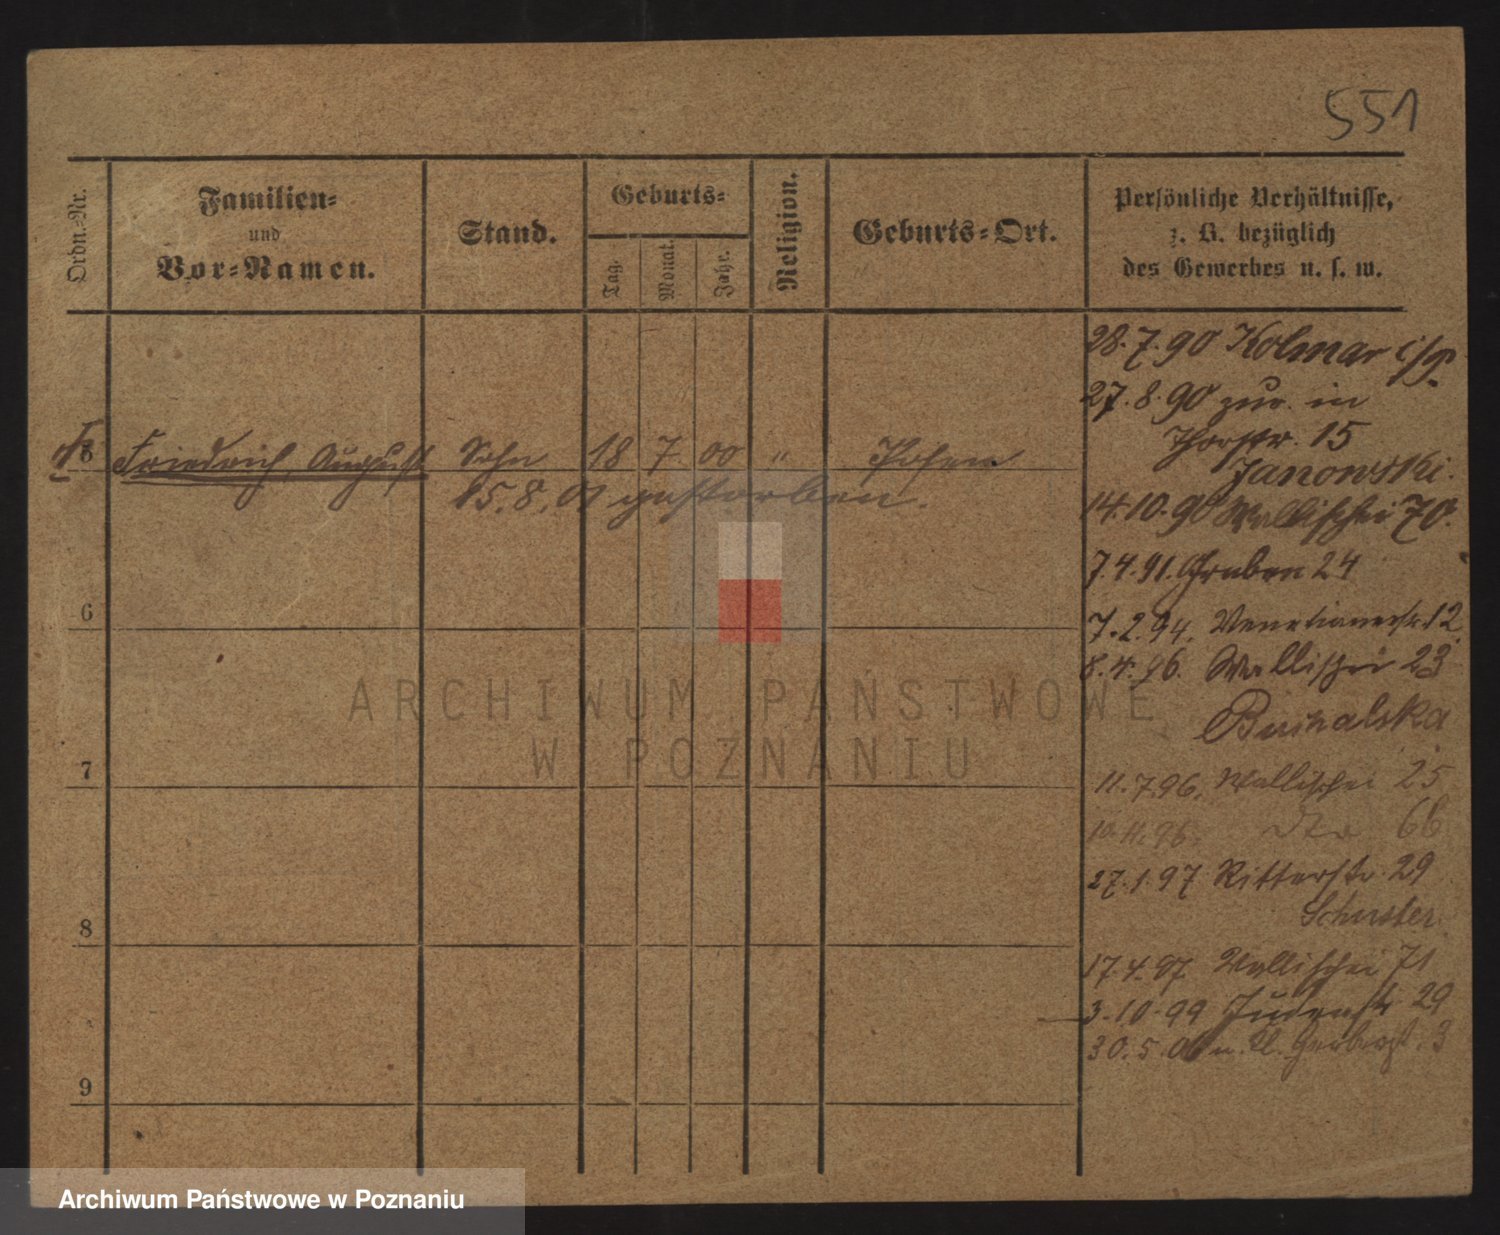 551
Ordn.-Nr.
Familien-
und
Vor-Namen.
Stand.
Geburts-
Tag.
Monat.
Jahr.
Religion.
Geburts-Ort.
Persönliche Verhältnisse,
z. B. bezüglich
des Gewerbes u. s. w.
5 Friedrich, August Sohn 18 7. 00 " Posen
15.8.01 gestorben.
6
7
8
9
28.7.90 Kolmar i/P.
27.8.90 zur. in
Thorstr. 15
Janowski.
14.10.90 Wallischei 70.
7.4.91. Gruben 24
7.2.94. Venetianerstr. 12.
8.4.96. Wallischei 23
11.7.96. Wallischei 25
10.11.96. dto 66
27.1.97 Ritterstr. 29
Schuster.
17.4.97 Wallischei 71
3.10.99 Judenstr 29
30.5.06 n. Kl. Gerberst. 3
ARCHIWUM PAŃSTWOWE
W POZNANIU
Archiwum Państwowe w Poznaniu